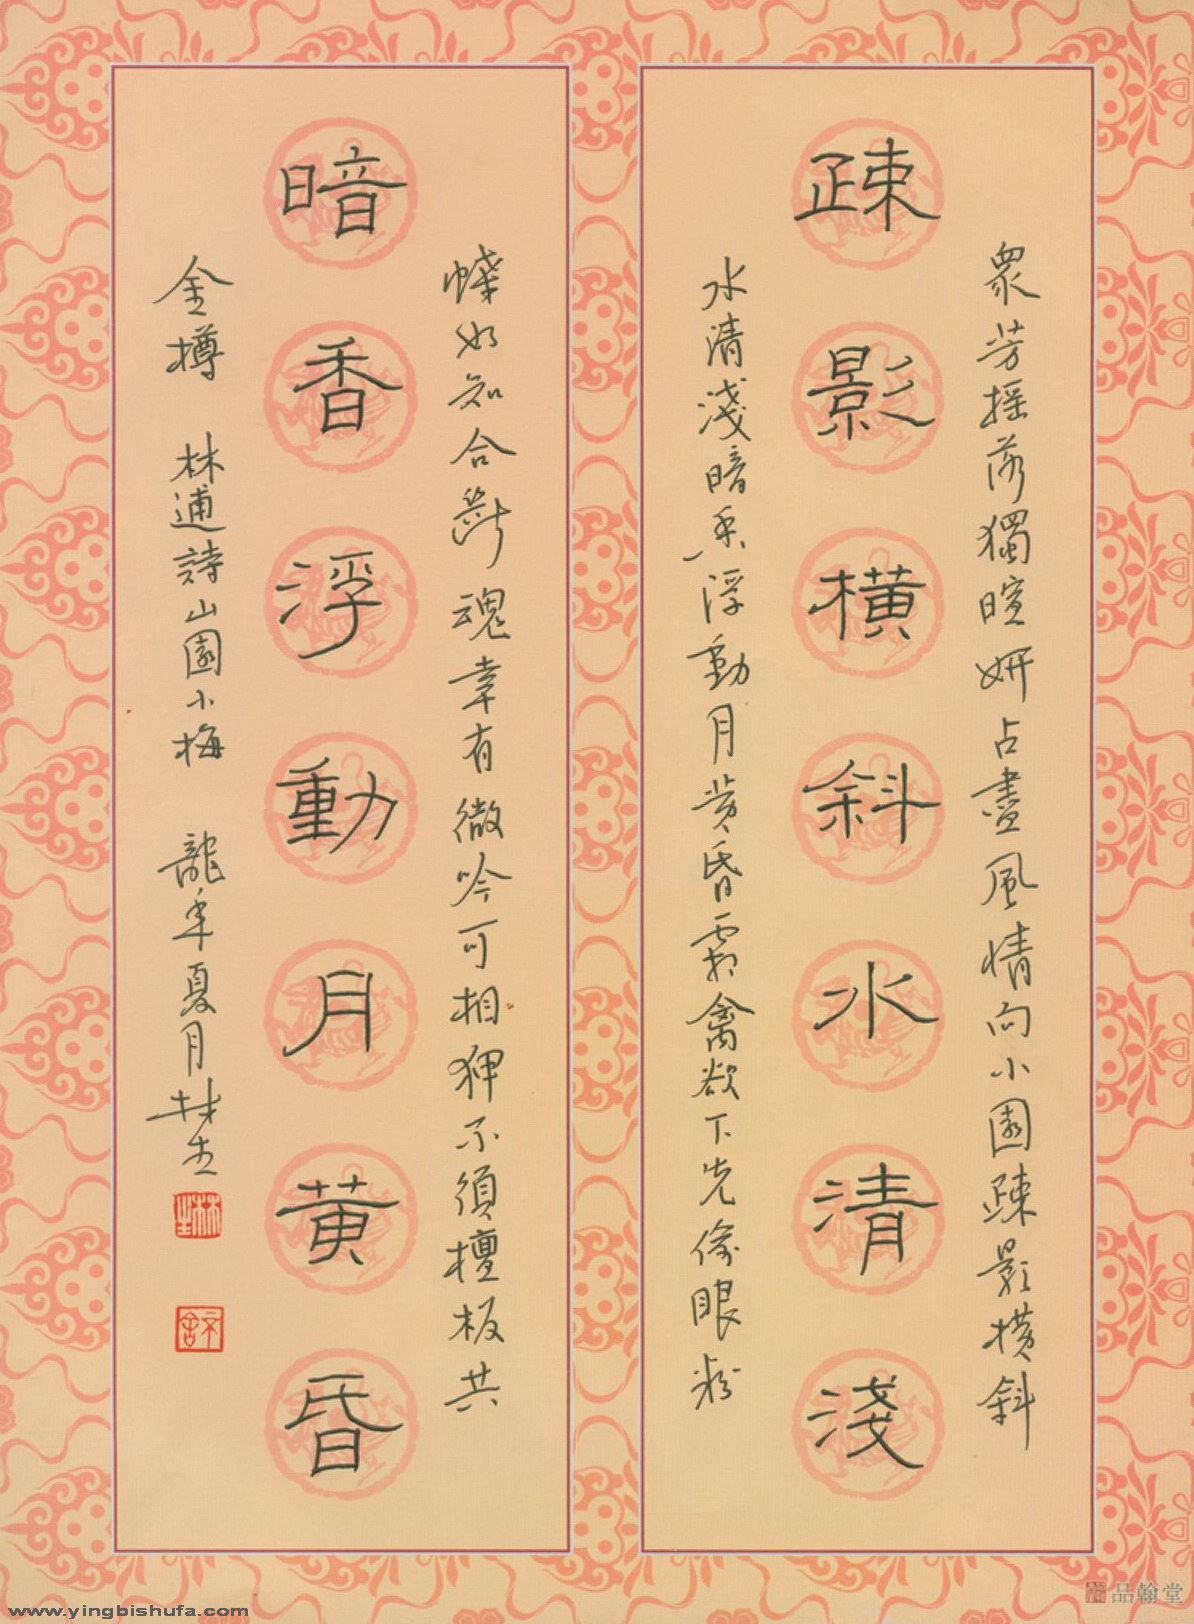 眾芳搖落獨暄妍占盡風情向小園疎影橫斜
疎影橫斜水清淺
水清淺暗香浮動月黃昏霜禽欲下先偷眼粉
蝶如知合斷魂幸有微吟可相狎不須檀板共
暗香浮動月黃昏
金樽 林逋詩山園小梅 龍年夏月林
www.yingbishufa.com
品翰堂